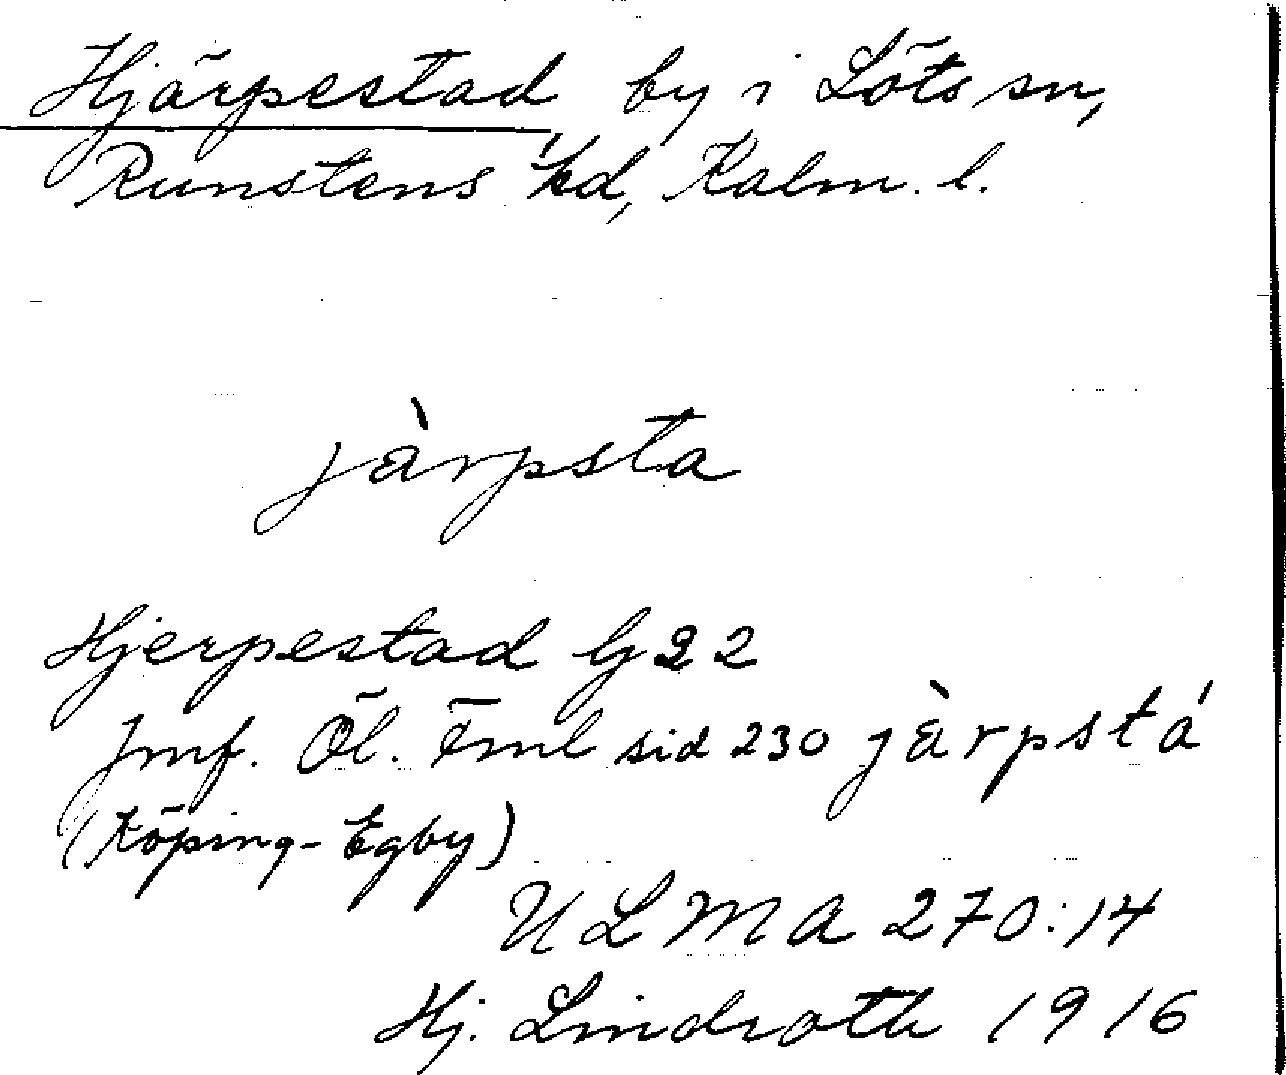 Hjärpestad, by i Löts sn,
Runstens hd, Kalm. l.
jàrpsta
Hjerpestad G 22
Jmf. Öl. Fml sid 230 jàrpstá
(Köping-Egby)
ULMA 270:14
Hj. Lindroth 1916